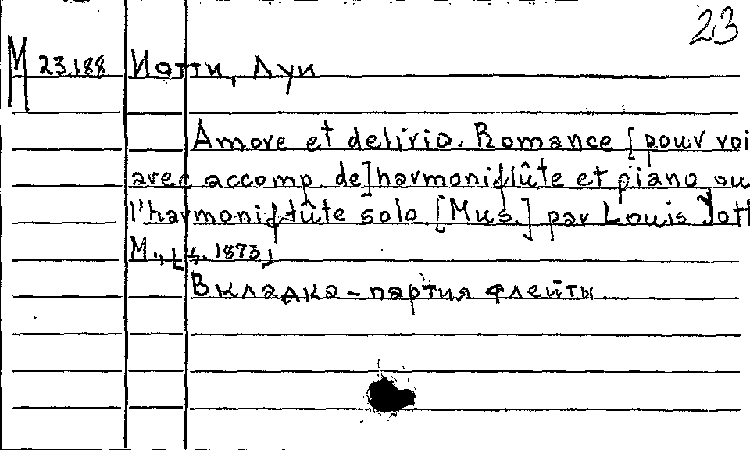 23
М 23.188 Иотти, Луи
Amore et delirio. Romance [pour voi
avec accomp. de] harmoniflûte et piano ou
l'harmoniflûte solo. [Mus.] par Louis Jott
М., [ц. 1873]
Вкладка – партия флейты.